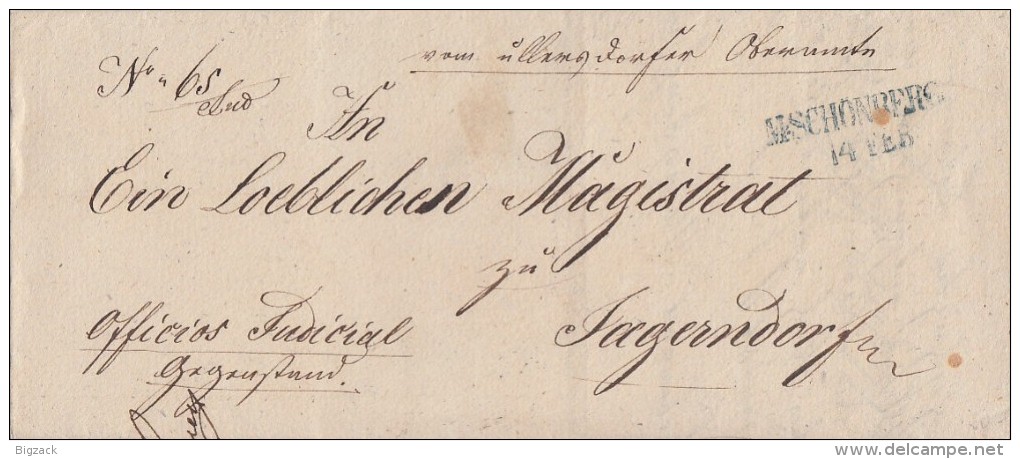 vom Ullersdorfer Oberamte
No. 65
Jud
An
M:SCHÖNBERG
14 FEB
Ein Loeblichen Magistrat
zu
Jaegerndorf
Officios Judicial
Gegenstand.
Bigzack
www.delcampe.net